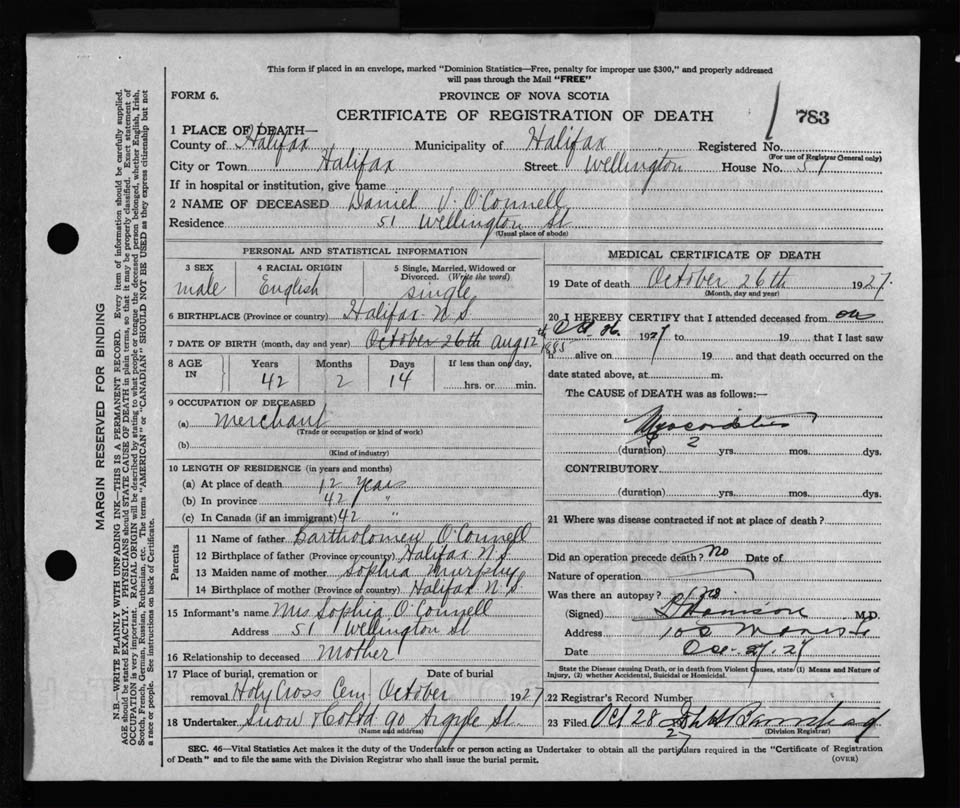 This form if placed in an envelope, marked "Dominion Statistics—Free, penalty for improper use $300," and properly addressed
will pass through the Mail "FREE"
FORM 6.
PROVINCE OF NOVA SCOTIA
CERTIFICATE OF REGISTRATION OF DEATH
783
1 PLACE OF DEATH—
County of Halifax Municipality of Halifax Registered No.
(For use of Registrar General only)
City or Town Halifax Street Wellington House No. 51
If in hospital or institution, give name
2 NAME OF DECEASED Daniel V. O'Connell
Residence 51 Wellington St
(Usual place of abode)
PERSONAL AND STATISTICAL INFORMATION
3 SEX 4 RACIAL ORIGIN 5 Single, Married, Widowed or
Divorced. (Write the word)
male English single
6 BIRTHPLACE (Province or country) Halifax N.S.
7 DATE OF BIRTH (month, day and year) October 26th Aug 12th 1885
8 AGE IN Years Months Days If less than one day,
42 2 14 hrs. or min.
9 OCCUPATION OF DECEASED
(a) Merchant
(Trade or occupation or kind of work)
(b)
(Kind of industry)
10 LENGTH OF RESIDENCE (in years and months)
(a) At place of death 12 Years
(b) In province 42 "
(c) In Canada (if an immigrant) 42 "
Parents
11 Name of father Bartholomew O'Connell
12 Birthplace of father (Province or country) Halifax N.S.
13 Maiden name of mother Sophia Murphy
14 Birthplace of mother (Province or country) Halifax N.S
15 Informant's name Mrs Sophia O'Connell
Address 51 Wellington St
16 Relationship to deceased Mother
17 Place of burial, cremation or Date of burial
removal Holy Cross Cem October 1927
18 Undertaker Snow & Co Ltd 90 Argyle St.
(Name and address)
MEDICAL CERTIFICATE OF DEATH
19 Date of death October 26th 1927.
(Month, day and year)
20 I HEREBY CERTIFY that I attended deceased from on
Oct 26 1927 to 19 that I last saw
h alive on 19 and that death occurred on
date stated above, at m.
The CAUSE of DEATH was as follows:—
Myocarditis
(duration) 2 yrs. mos. dys.
CONTRIBUTORY
(duration) yrs. mos. dys.
21 Where was disease contracted if not at place of death?
Did an operation precede death? no Date of
Nature of operation
Was there an autopsy? no
(Signed) M.D.
Address
Date Oct. 27. 27
State the Disease causing Death, or in death from Violent Causes, state (1) Means and Nature of
Injury, (2) whether Accidental, Suicidal or Homicidal.
22 Registrar's Record Number
23 Filed Oct 28 27
(Division Registrar)
SEC. 46—Vital Statistics Act makes it the duty of the Undertaker or person acting as Undertaker to obtain all the particulars required in the "Certificate of Registration
of Death" and to file the same with the Division Registrar who shall issue the burial permit.
(OVER)
MARGIN RESERVED FOR BINDING
N.B.—WRITE PLAINLY WITH UNFADING INK—THIS IS A PERMANENT RECORD. Every item of information should be carefully supplied.
AGE should be stated EXACTLY. PHYSICIANS should STATE CAUSE OF DEATH in plain terms, so that it may be properly classified. Exact statement of
OCCUPATION is very important. RACIAL ORIGIN will be described by stating to what people or tongue the deceased person belonged, whether English, Irish,
Scotch, French, German, Russian, Ruthenian, etc. The terms "AMERICAN" or "CANADIAN" SHOULD NOT BE USED as they express citizenship but not
a race or people. See instructions on back of Certificate.